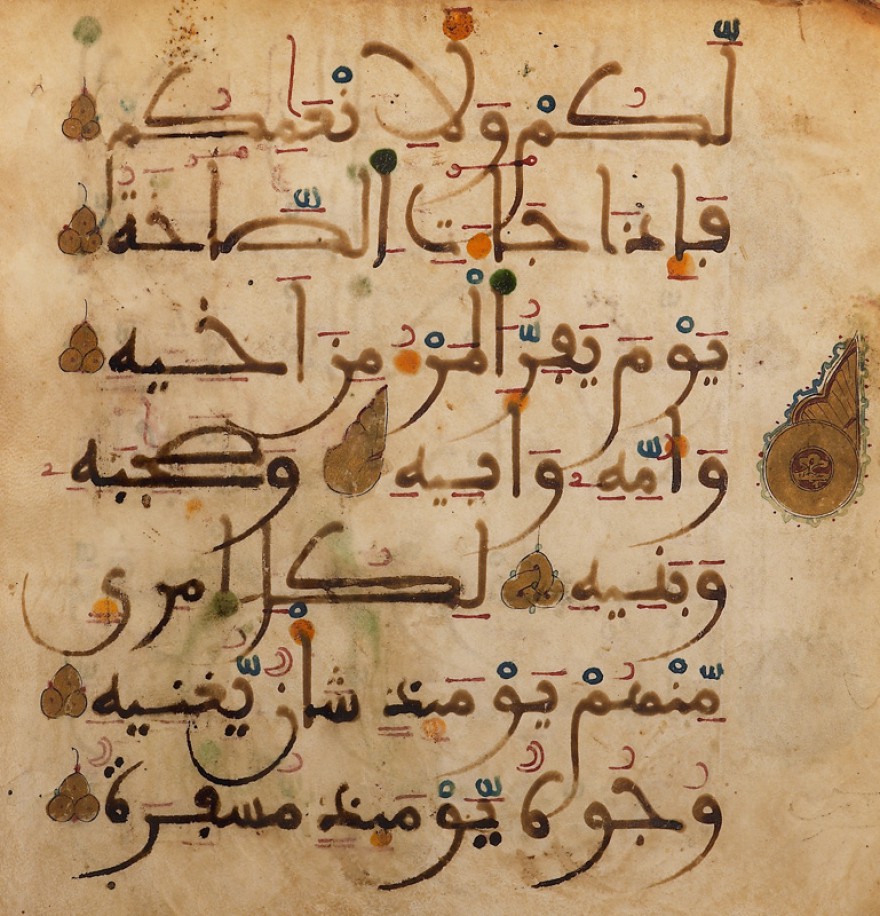 لَّكُمْ وَلِأَنْعَٰمِكُمْ
فَإِذَا جَآءَتِ الصَّآخَّةُ
يَوْمَ يَفِرُّ الْمَرْءُ مِنَ اَخِيهِ
وَأُمِّهِ وَأَبِيهِ وَصَٰحِبَتِهِ
وَبَنِيهِ لِكُلِّ امْرِئٍ
مِّنْهُمْ يَوْمَئِذٍ شَأْنٌ يُّغْنِيهِ
وُجُوهٌ يَّوْمَئِذٍ مُّسْفِرَةٌ